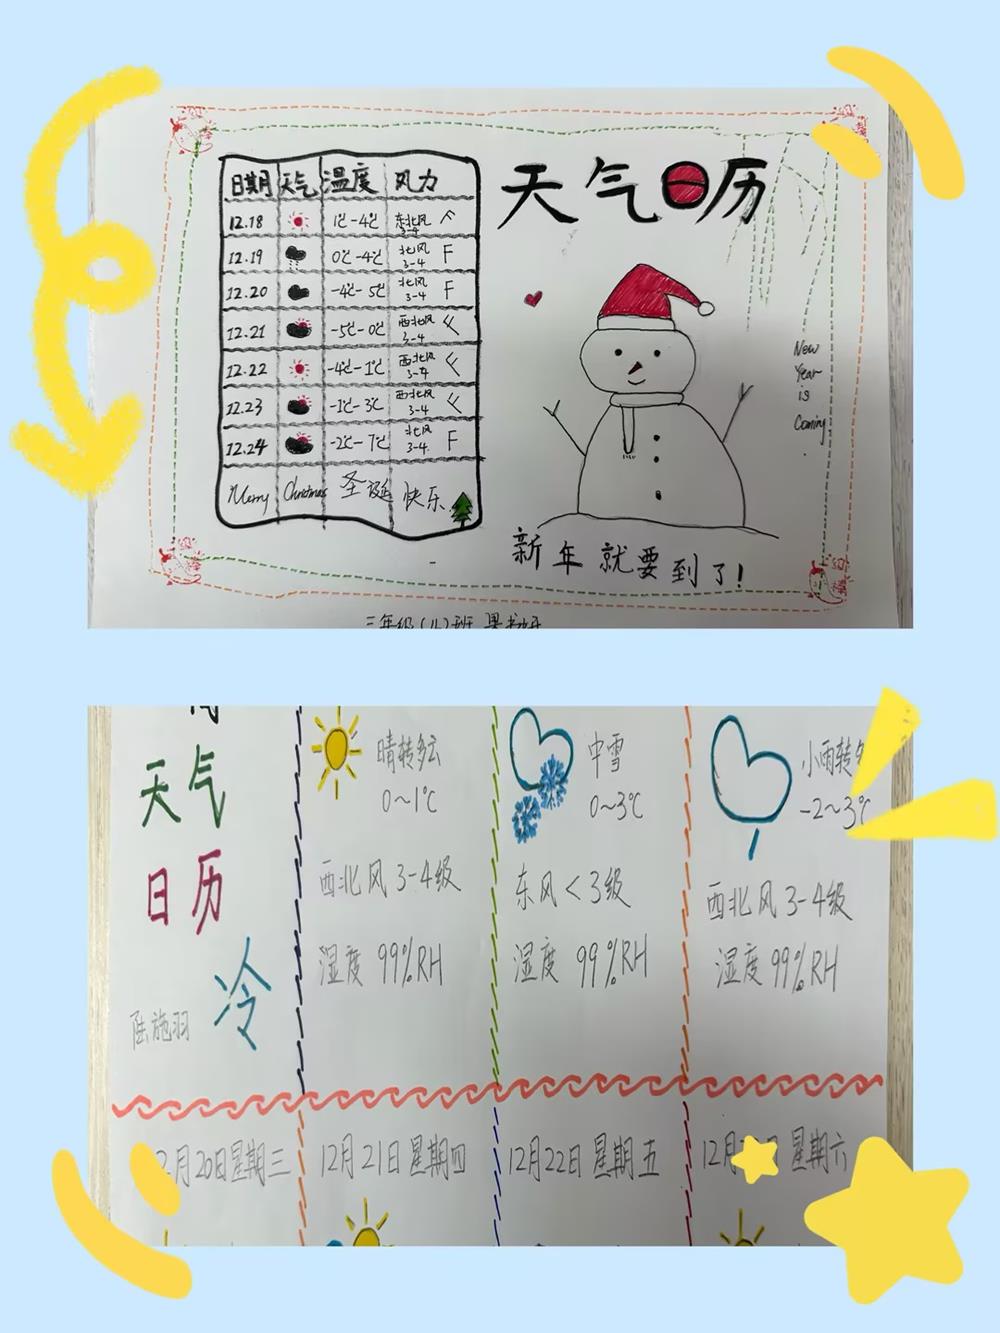 天气日历
日期 天气 温度 风力
12.18 1℃-4℃ 东北风 3-4
12.19 0℃-4℃ 北风 3-4
12.20 -4℃-5℃ 北风 3-4
12.21 -5℃-0℃ 西北风 3-4
12.22 -4℃-1℃ 西北风 3-4
12.23 -1℃-3℃ 西北风 3-4
12.24 -2℃-7℃ 北风 3-4
Merry Christmas 圣诞 快乐
New
Year
is
Coming
新年就要到了!
三年级
天气
日历
冷
陆施羽
晴转多云
0~1℃
西北风 3-4级
湿度 99%RH
中雪
0~3℃
东风<3级
湿度 99%RH
小雨转
-2~3℃
西北风 3-4级
湿度 99%RH
2月20日星期三
12月21日星期四
12月22日星期五
12月 星期六